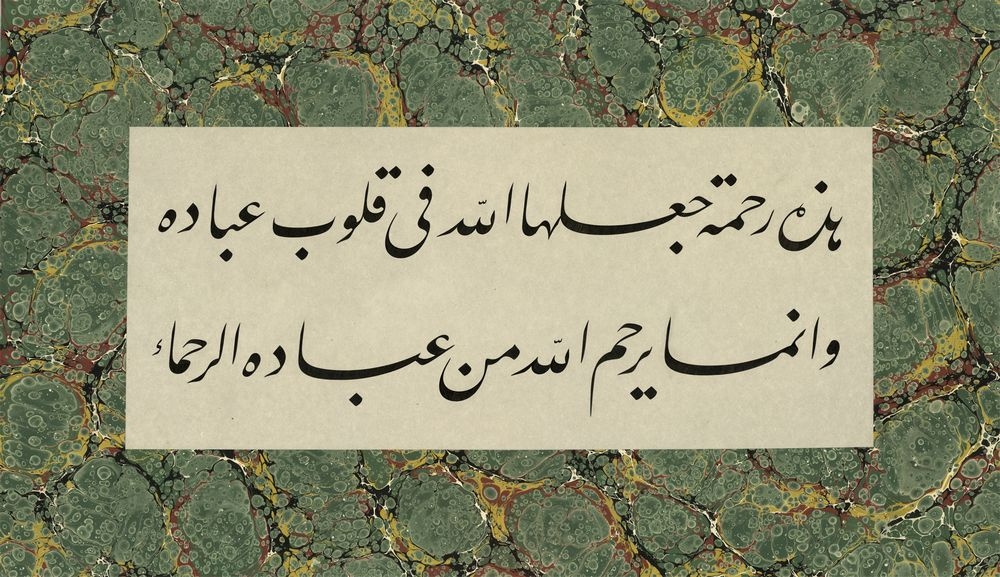 هذه رحمة جعلها الله في قلوب عباده
وانما يرحم الله من عباده الرحماء